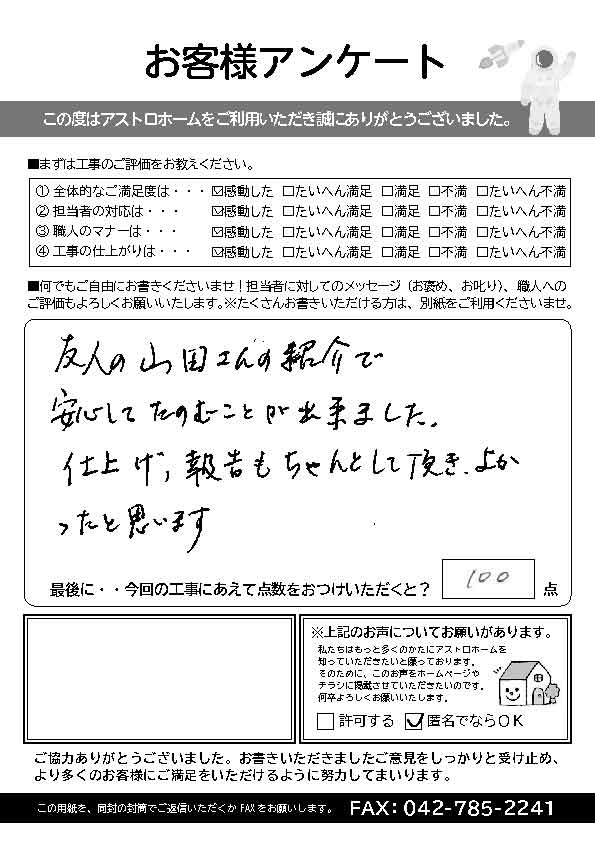 お客様アンケート
この度はアストロホームをご利用いただき誠にありがとうございました。
■まずは工事のご評価をお教えください。
①全体的なご満足度は・・・ ☑感動した □たいへん満足 □満足 □不満 □たいへん不満
②担当者の対応は・・・ ☑感動した □たいへん満足 □満足 □不満 □たいへん不満
③職人のマナーは・・・ ☑感動した □たいへん満足 □満足 □不満 □たいへん不満
④工事の仕上がりは・・・ ☑感動した □たいへん満足 □満足 □不満 □たいへん不満
■何でもご自由にお書きくださいませ！担当者に対してのメッセージ（お褒め、お叱り）、職人への
ご評価もよろしくお願いいたします。※たくさんお書きいただける方は、別紙をご利用くださいませ。
友人の山田さんの紹介で
安心してたのむことが出来ました。
仕上げ,報告もちゃんとして頂き、よか
ったと思います
最後に・・今回の工事にあえて点数をおつけいただくと？ 100 点
※上記のお声についてお願いがあります。
私たちはもっと多くのかたにアストロホームを
知っていただきたいと願っております。
そのために、このお声をホームページや
チラシに掲載させていただきたいのです。
何卒よろしくお願いいたします。
□許可する ☑匿名でならOK
ご協力ありがとうございました。お書きいただきましたご意見をしっかりと受け止め、
より多くのお客様にご満足をいただけるように努力してまいります。
この用紙を、同封の封筒でご返信いただくかFAXをお願いします。 FAX：042-785-2241